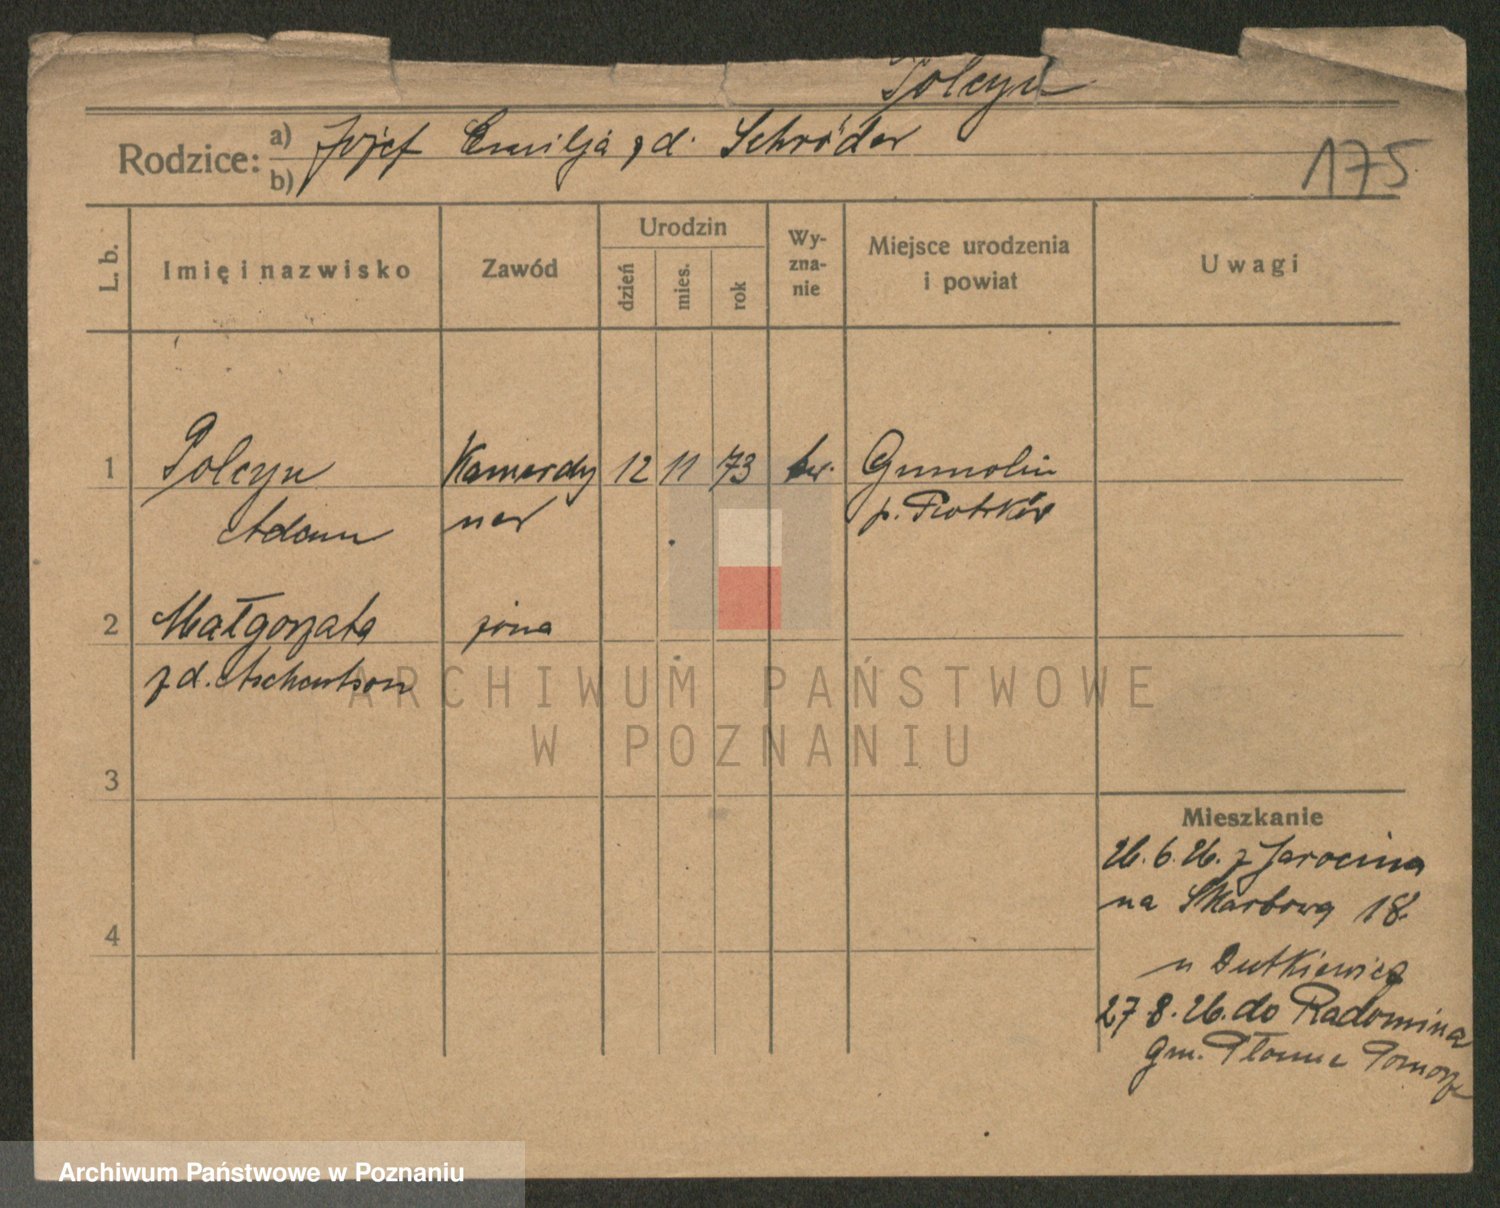 Polcyn
Rodzice: a) Józef Emilja z d. Schröder
b)
175
L. b.
Imię i nazwisko
Zawód
Urodzin
dzień
mies.
rok
Wy-
zna-
nie
Miejsce urodzenia
i powiat
Uwagi
1 Polcyn Kamerdy 12 11 73 Gumolin
Adam ner p. Piotrków
2 Małgorzata żona
z d.
3
4
Mieszkanie
26.6.26. z Jarocina
na Skarbową 18.
u Dutkiewicz
27.8.26. do Radomina
gm. Płonne Pomorze
ARCHIWUM PAŃSTWOWE
W POZNANIU
Archiwum Państwowe w Poznaniu